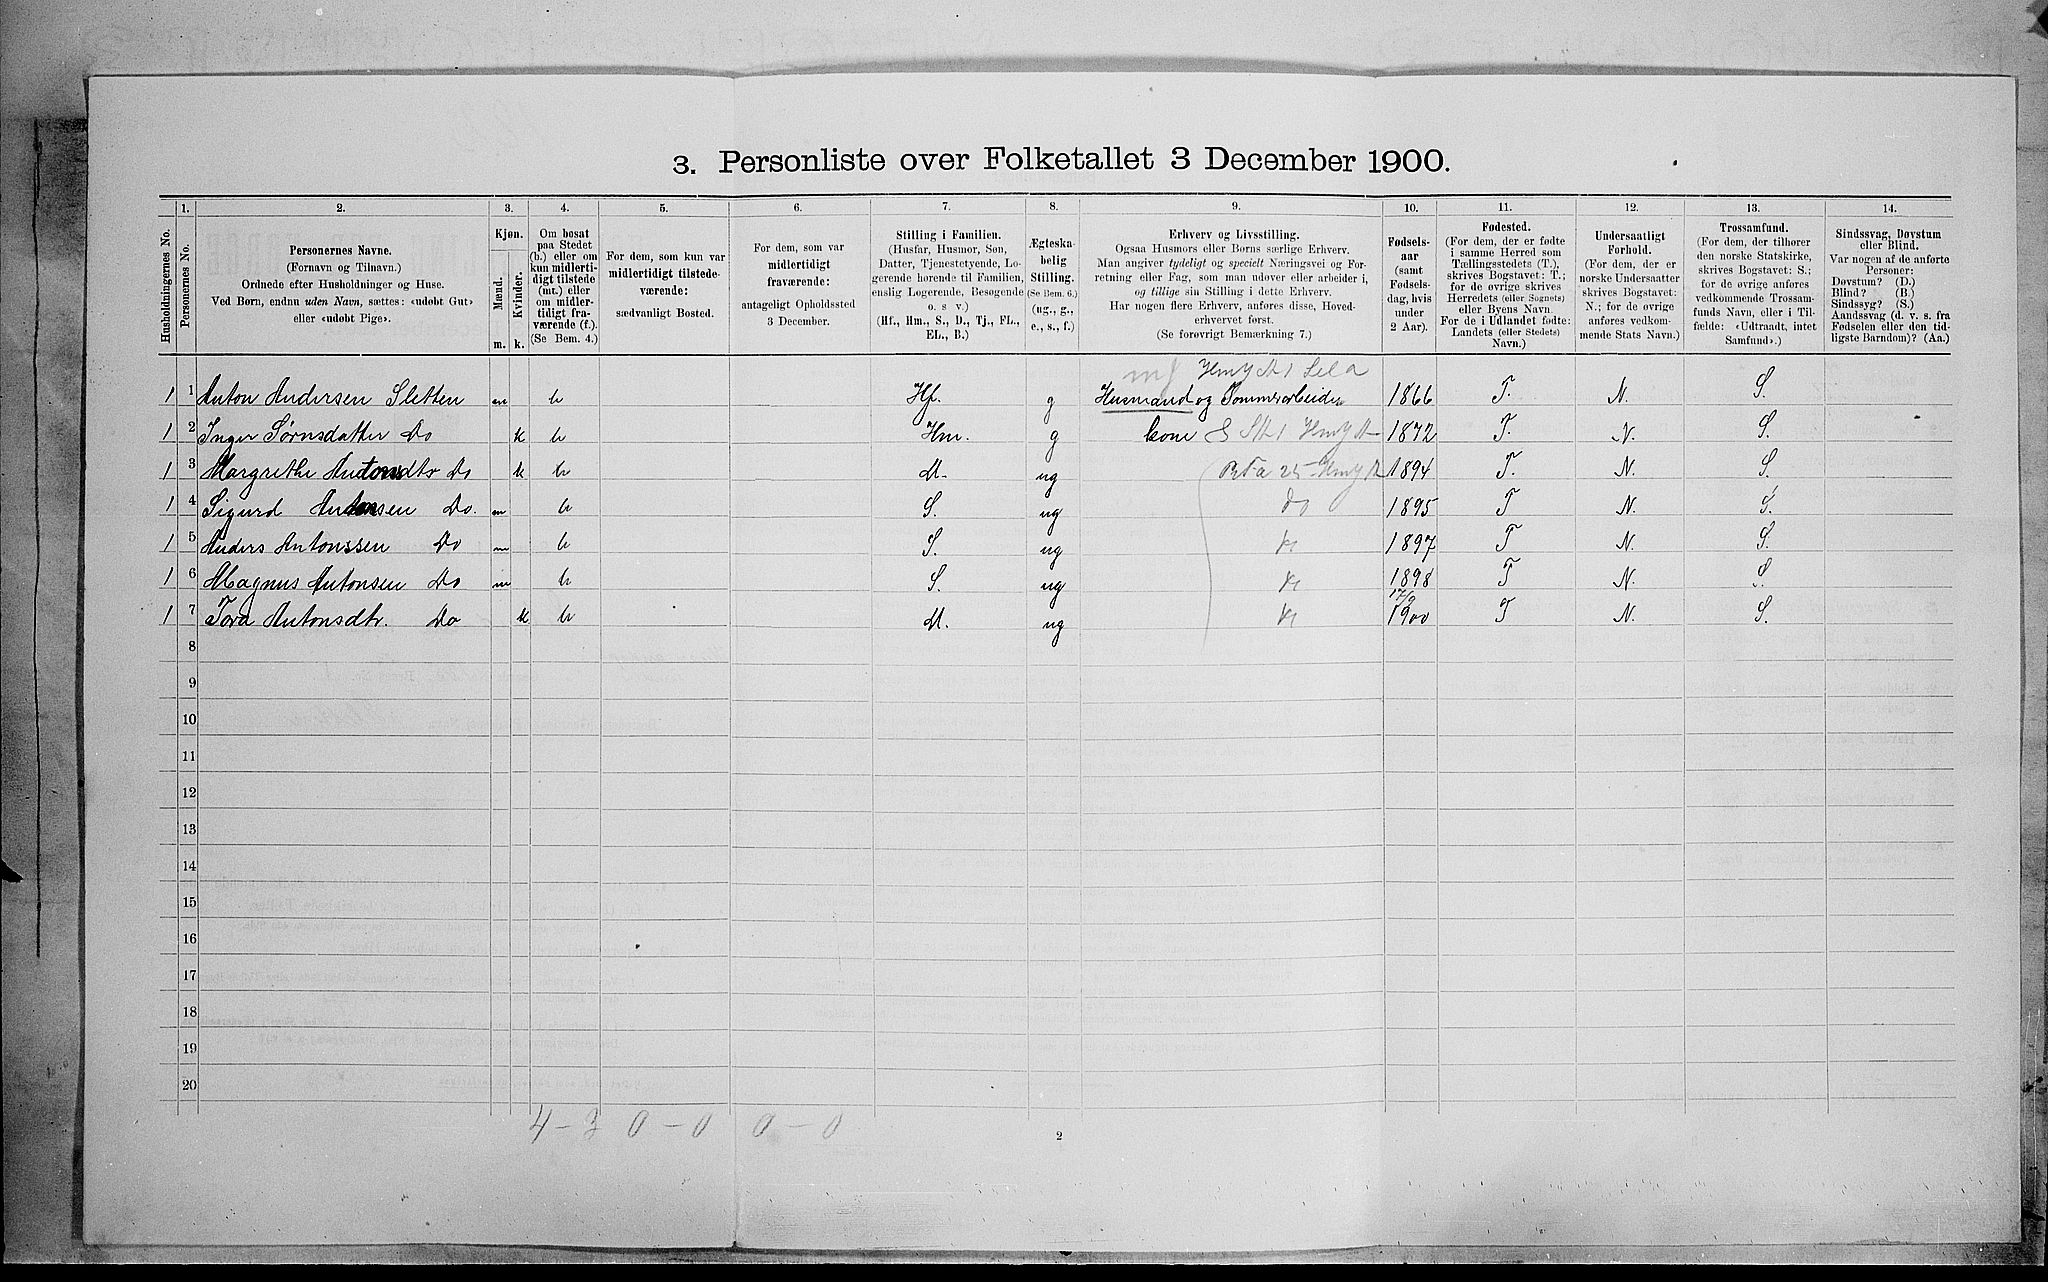 3. Personliste over Folketallet 3 December 1900.
1. 2. 3. 4. 5. 6. 7. 8. 9. 10. 11. 12. 13. 14.
Husholdningernes No.
Personernes No.
Personernes Navne.
(Fornavn og Tilnavn.)
Ordnede efter Husholdninger og Huse.
Ved Børn, endnu uden Navn, sættes: «udøbt Gut»
eller «udøbt Pige».
Kjøn.
Mænd.
Kvinder.
m. k.
Om bosat
paa Stedet
(b.) eller om
kun midlerti-
digt tilstede
(mt.) eller
om midler-
tidigt fra-
værende (f.).
(Se Bem. 4.)
For dem, som kun var
midlertidigt tilstede-
værende:
sædvanligt Bosted.
For dem, som var
midlertidigt
fraværende:
antageligt Opholdssted
3 December.
Stilling i Familien.
(Husfar, Husmor, Søn,
Datter, Tjenestetyende, Lo-
gerende hørende til Familien,
enslig Logerende, Besøgende
o. s. v.)
(Hf., Hm., S., D., Tj., FL.,
EL., B.)
Ægteska-
belig
Stilling.
(Se Bem. 6.)
(ug., g.,
e., s., f.)
Erhverv og Livsstilling.
Ogsaa Husmors eller Børns særlige Erhverv.
Man angiver tydeligt og specielt Næringsvei og For-
retning eller Fag, som man udøver eller arbeider i,
og tillige sin Stilling i dette Erhverv.
Har nogen flere Erhverv, anføres disse, Hoved-
erhvervet først.
(Se forøvrigt Bemærkning 7.)
Fødsels-
aar
(samt
Fødsels-
dag, hvis
under
2 Aar).
Fødested.
(For dem, der er fødte
i samme Herred som
Tællingsstedets (T.),
skrives Bogstavet: T.;
for de øvrige skrives
Herredets (eller Sognets)
eller Byens Navn.
For de i Udlandet fødte:
Landets (eller Stedets)
Navn.)
Undersaatligt
Forhold.
(For dem, der er
norske Undersaatter
skrives Bogstavet:
N.; for de øvrige
anføres vedkom-
mende Stats Navn.)
Trossamfund.
(For dem, der tilhører
den norske Statskirke,
skrives Bogstavet: S.;
for de øvrige anføres
vedkommende Trossam-
funds Navn, eller i Til-
fælde: «Udtraadt, intet
Samfund».)
Sindssvag, Døvstum
eller Blind.
Var nogen af de anførte
Personer:
Døvstum? (D.)
Blind? (B.)
Sindssyg? (S.)
Aandssvag (d. v. s. fra
Fødselen eller den tid-
ligste Barndom)? (Aa.)
1 1 Anton Andersen Sletten m b Hf. g Husmand og Tømmerarbeider 1866 T. N. S.
1 2 Inger Sørnsdatter Do k b Hm. g kone 1872 T. N. S.
1 3 Margrethe Antonsdtr Do k b D. ug 1894 T. N. S.
1 4 Sigurd Antonsen Do. m b S. ug do 1895 T N. S.
1 5 Anders Antonssen Do m b S. ug 1897 T N. S.
1 6 Magnus Antonsen Do m b S. ug 1898 T N. S.
1 7 Tora Antonsdtr. Do k b D. ug 17/9 1900 T N. S.
8
9
10
11
12
13
14
15
16
17
18
19
20
4 - 3 0 - 0 0 - 0
2